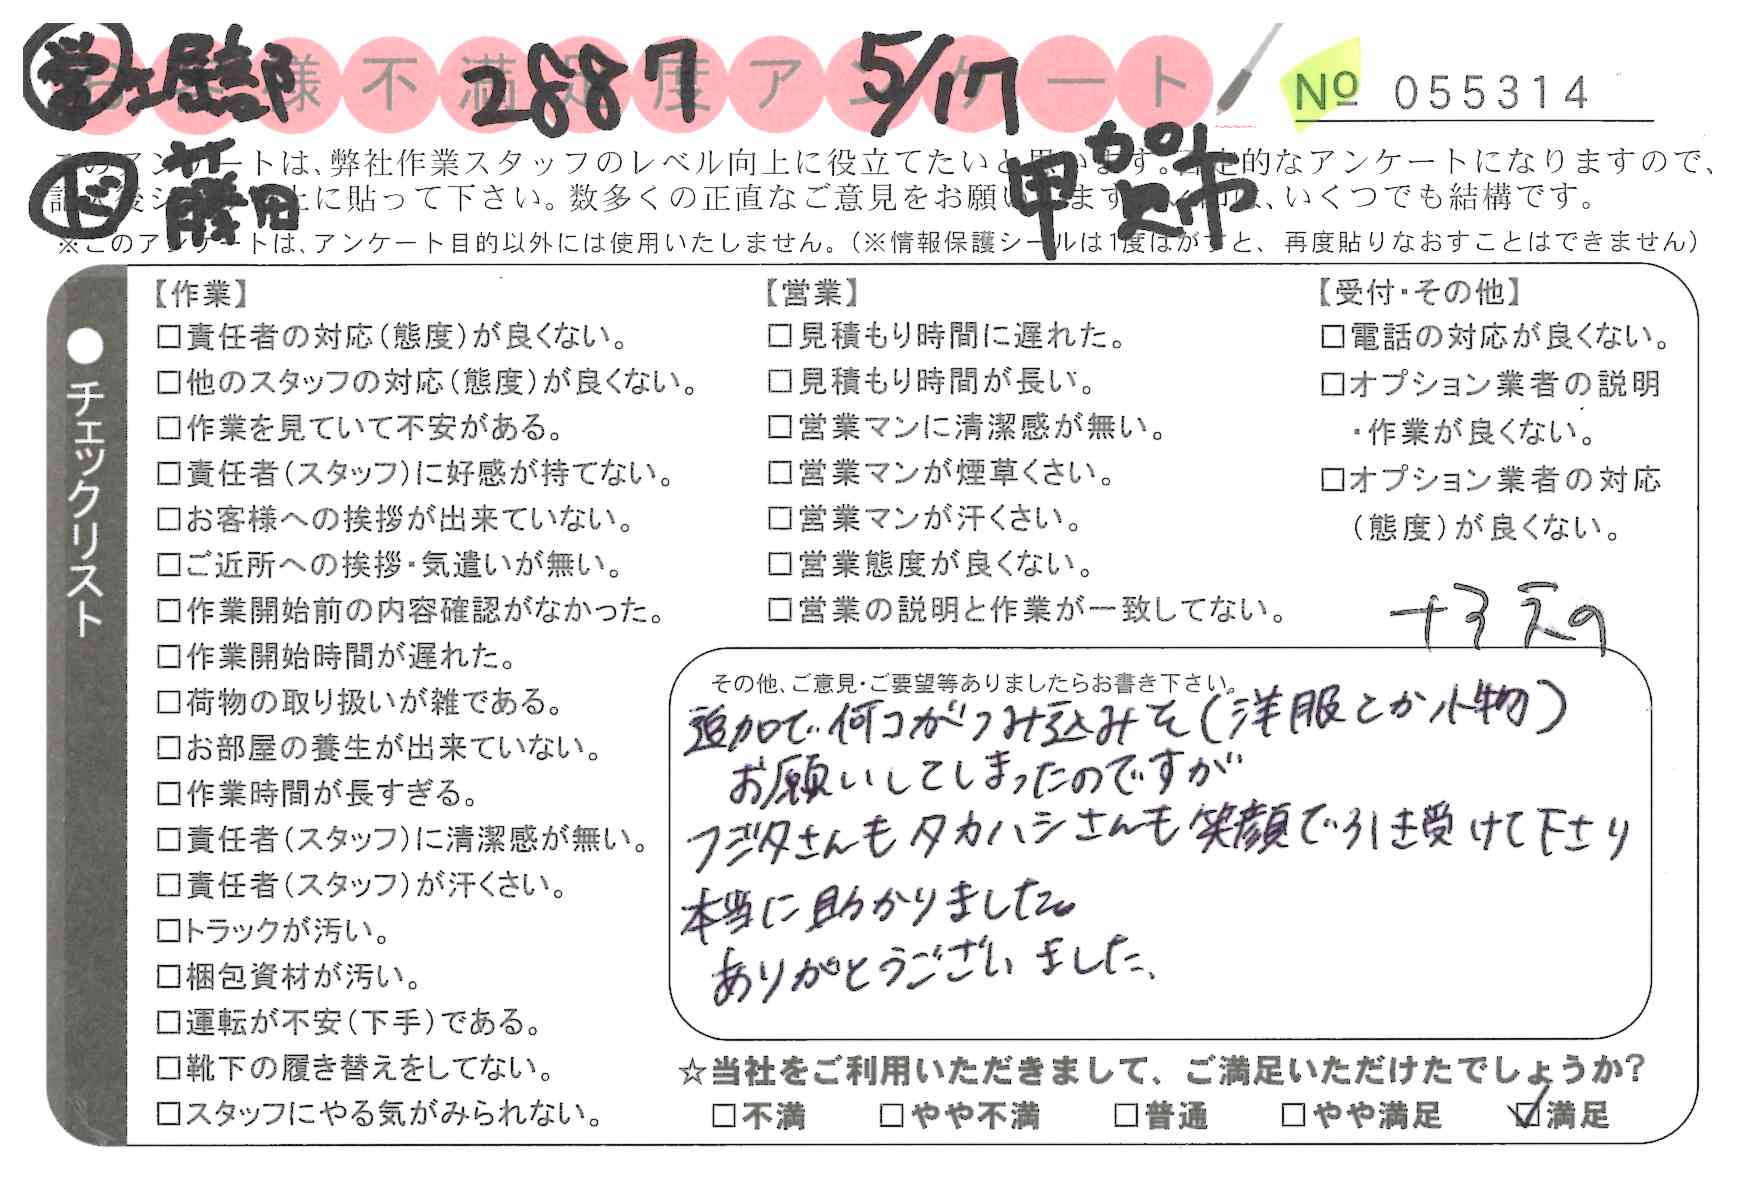 営 工屋部 2887 5/17
お客様不満足度アンケート
№ 055314
ド 藤田 甲賀市
このアンケートは、弊社作業スタッフのレベル向上に役立てたいと思います。否定的なアンケートになりますので、
記入後シールを上に貼って下さい。数多くの正直なご意見をお願いします。✓印は、いくつでも結構です。
※このアンケートは、アンケート目的以外には使用いたしません。（※情報保護シールは1度はがすと、再度貼りなおすことはできません）
●チェックリスト
【作業】
□責任者の対応（態度）が良くない。
□他のスタッフの対応（態度）が良くない。
□作業を見ていて不安がある。
□責任者（スタッフ）に好感が持てない。
□お客様への挨拶が出来ていない。
□ご近所への挨拶・気遣いが無い。
□作業開始前の内容確認がなかった。
□作業開始時間が遅れた。
□荷物の取り扱いが雑である。
□お部屋の養生が出来ていない。
□作業時間が長すぎる。
□責任者（スタッフ）に清潔感が無い。
□責任者（スタッフ）が汗くさい。
□トラックが汚い。
□梱包資材が汚い。
□運転が不安（下手）である。
□靴下の履き替えをしてない。
□スタッフにやる気がみられない。
【営業】
□見積もり時間に遅れた。
□見積もり時間が長い。
□営業マンに清潔感が無い。
□営業マンが煙草くさい。
□営業マンが汗くさい。
□営業態度が良くない。
□営業の説明と作業が一致してない。
【受付・その他】
□電話の対応が良くない。
□オプション業者の説明
・作業が良くない。
□オプション業者の対応
（態度）が良くない。
その他、ご意見・ご要望等ありましたらお書き下さい。
追加で何コかつみ込みを（洋服とか小物）
お願いしてしまったのですが
フジタさんもタカハシさんも笑顔で引き受けて下さり
本当に助かりました。
ありがとうございました、
☆当社をご利用いただきまして、ご満足いただけたでしょうか?
□不満 □やや不満 □普通 □やや満足 ☑満足